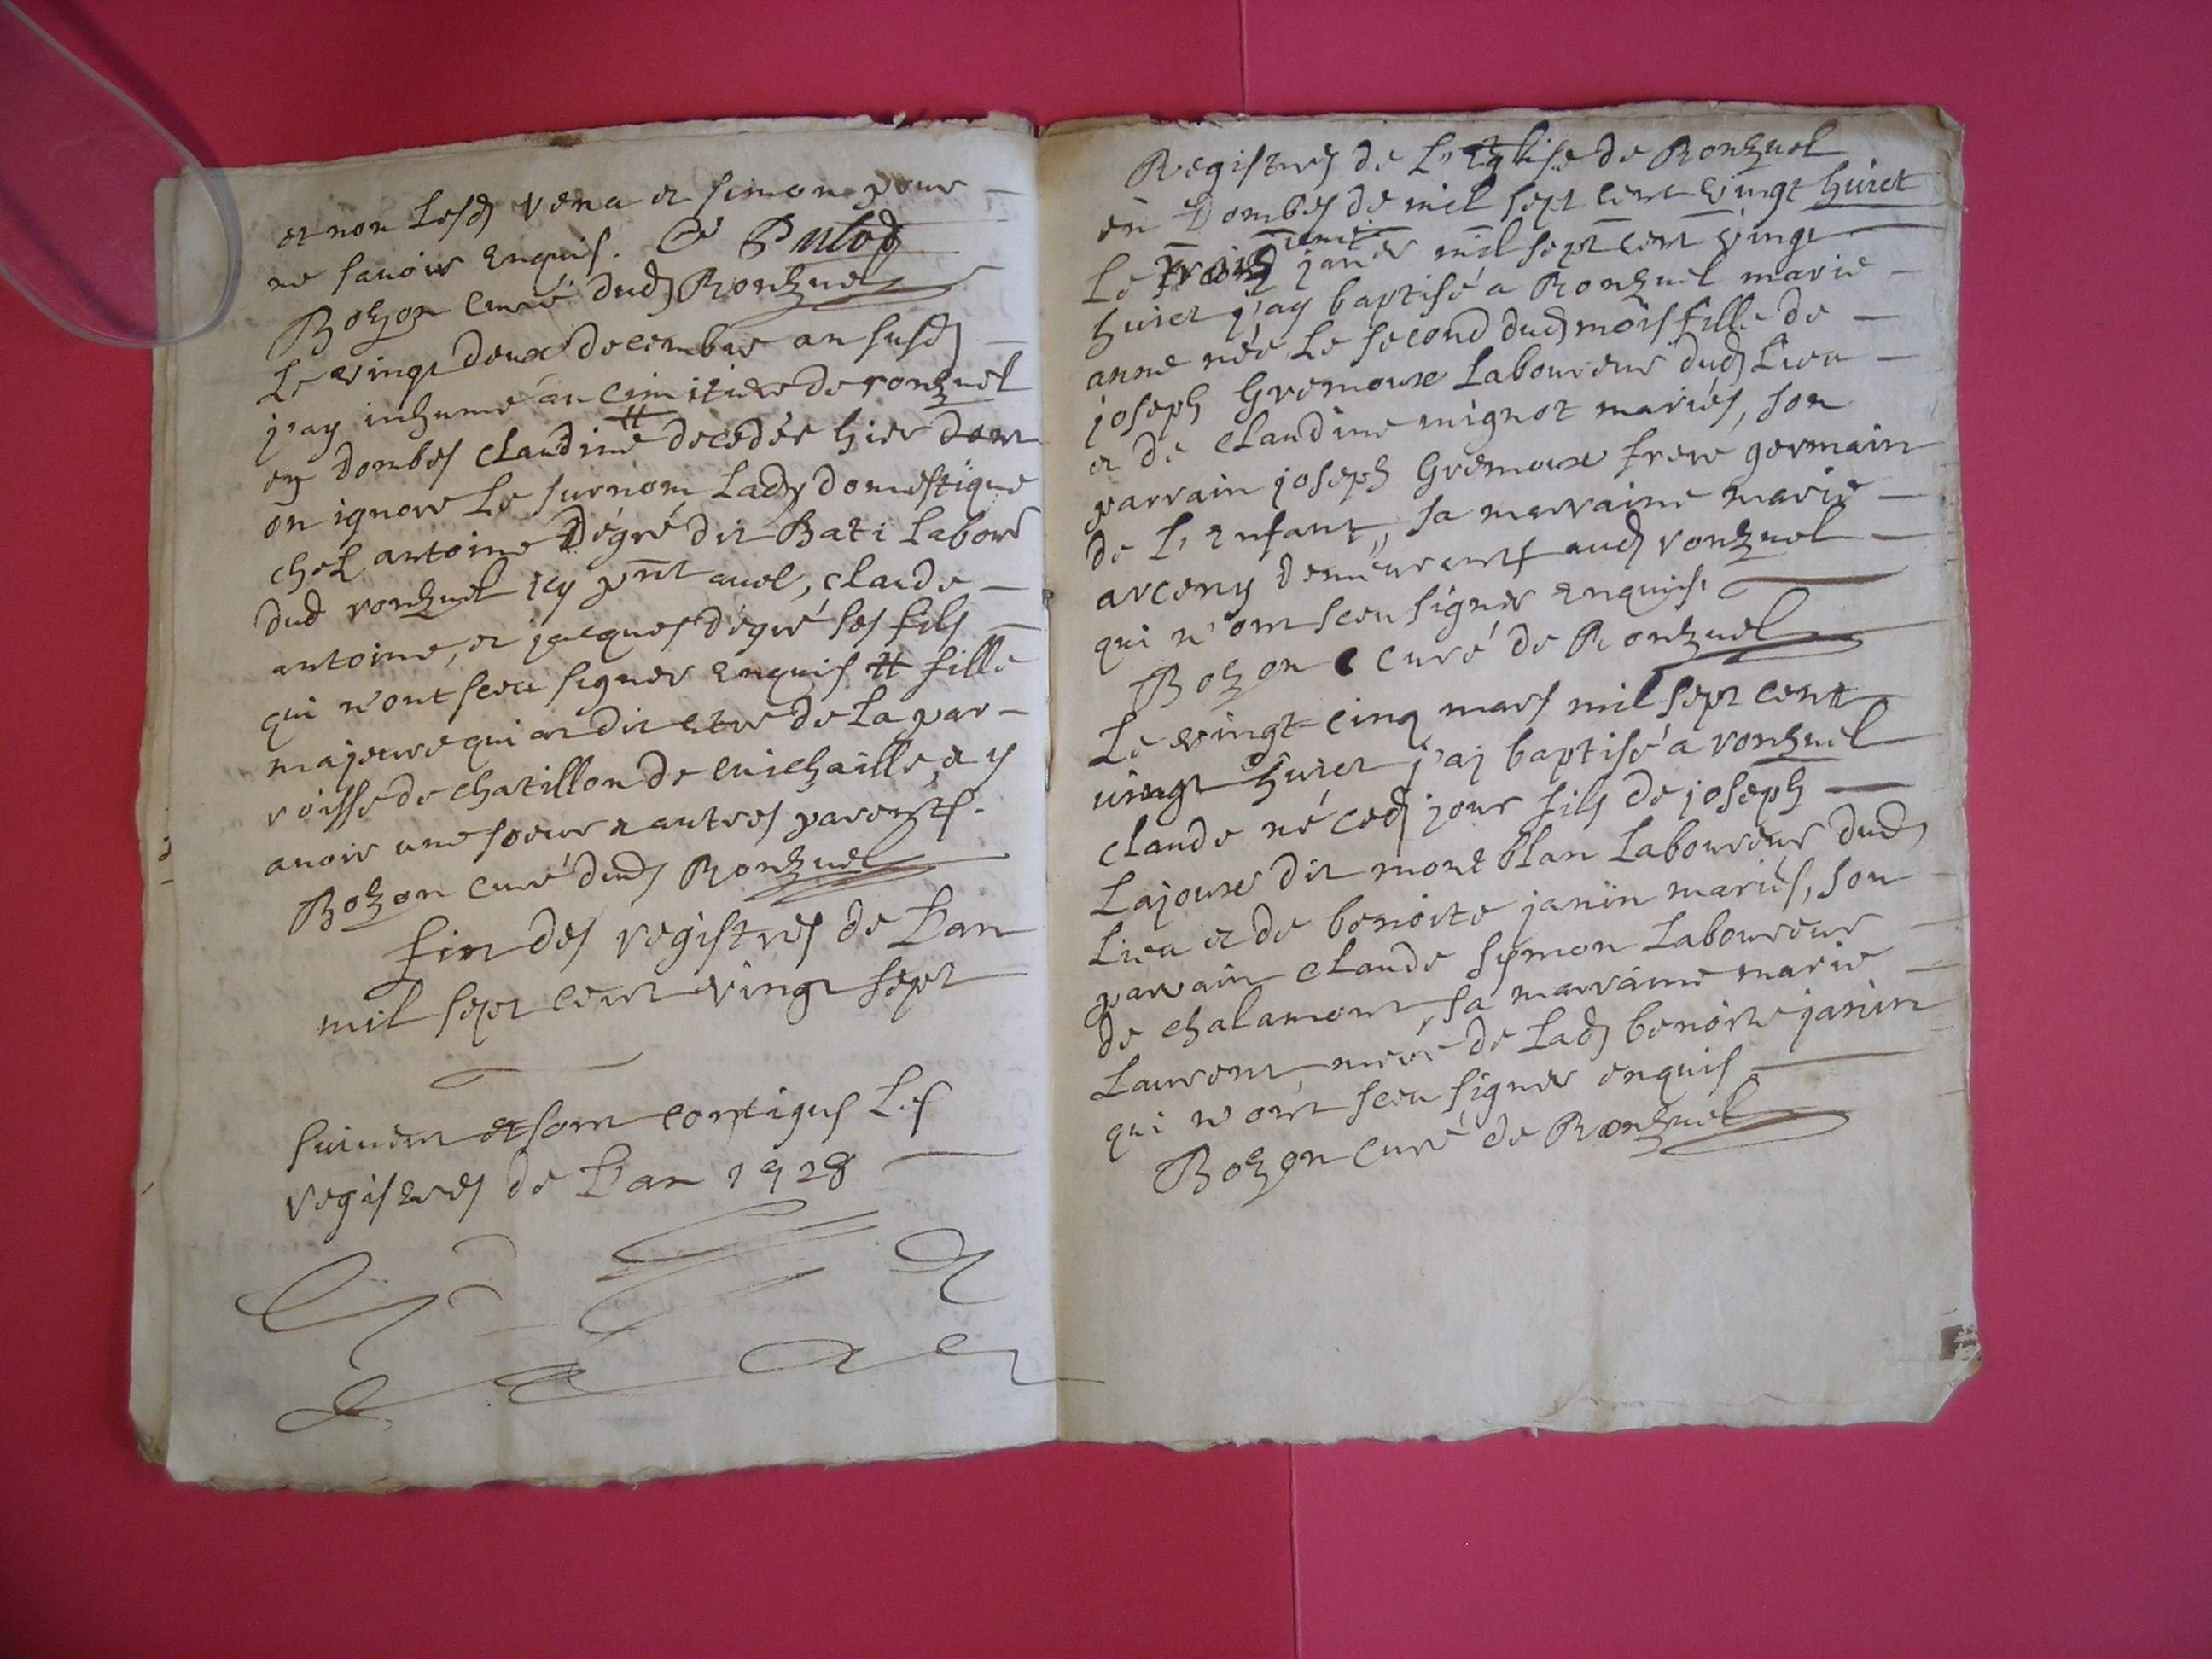 et non lesd vena et simon pour
ne savoir enquis. C Pulod
Bozon curé dud Ronzuel
Le vingt deux decembre an susd
j'ay inhumé au cimitiere de ronzuel
en dombes claudine # decedée hier dont
on ignore le surnom lad domestique
chez antoine Dégré dit Bati labour
dud ronzuel icy pnt avel, claude
antoine, et jacques dégré ses fils
qui n'ont sceu signer enquis # fille
majeure qui an dit etre de la par-
roisse de chatillon de michaille, & y
avoir une soeur & autres parents.
Bozon curé dud Ronzuel
fin des registres de L'an
mil sept cent vingt sept
suivent et sont contigus les
registres de L'an 1728
Registres de L'Eglise de Ronzuel
en Dombes de mil sept cent vingt huict
Le janer mil sept cent vingt
huict j'ay baptisé a Ronzuel marie
anne née le second dud mois fille de
joseph Gremoux laboureur dud lieu
et de claudine mignot mariés, son
parrain joseph Gremoux frere germain
de l'enfant, sa marraine marie
arceny demeurants aud ronzuel
qui n'ont sceu signer enquis.
Bozon curé de Ronzuel
Le vingt-cinq mars mil sept cent
vingt huict j'ai baptisé a ronzuel
claude né ced jour fils de joseph
Lajoux dit mont blan laboureur dud
lieu et de benoite janin mariés, son
parrain claude symon laboureur
de chalamont, sa marraine marie
laurent mere de lad benoite janin
qui n'ont sceu signer enquis
Bozon curé de Ronzuel